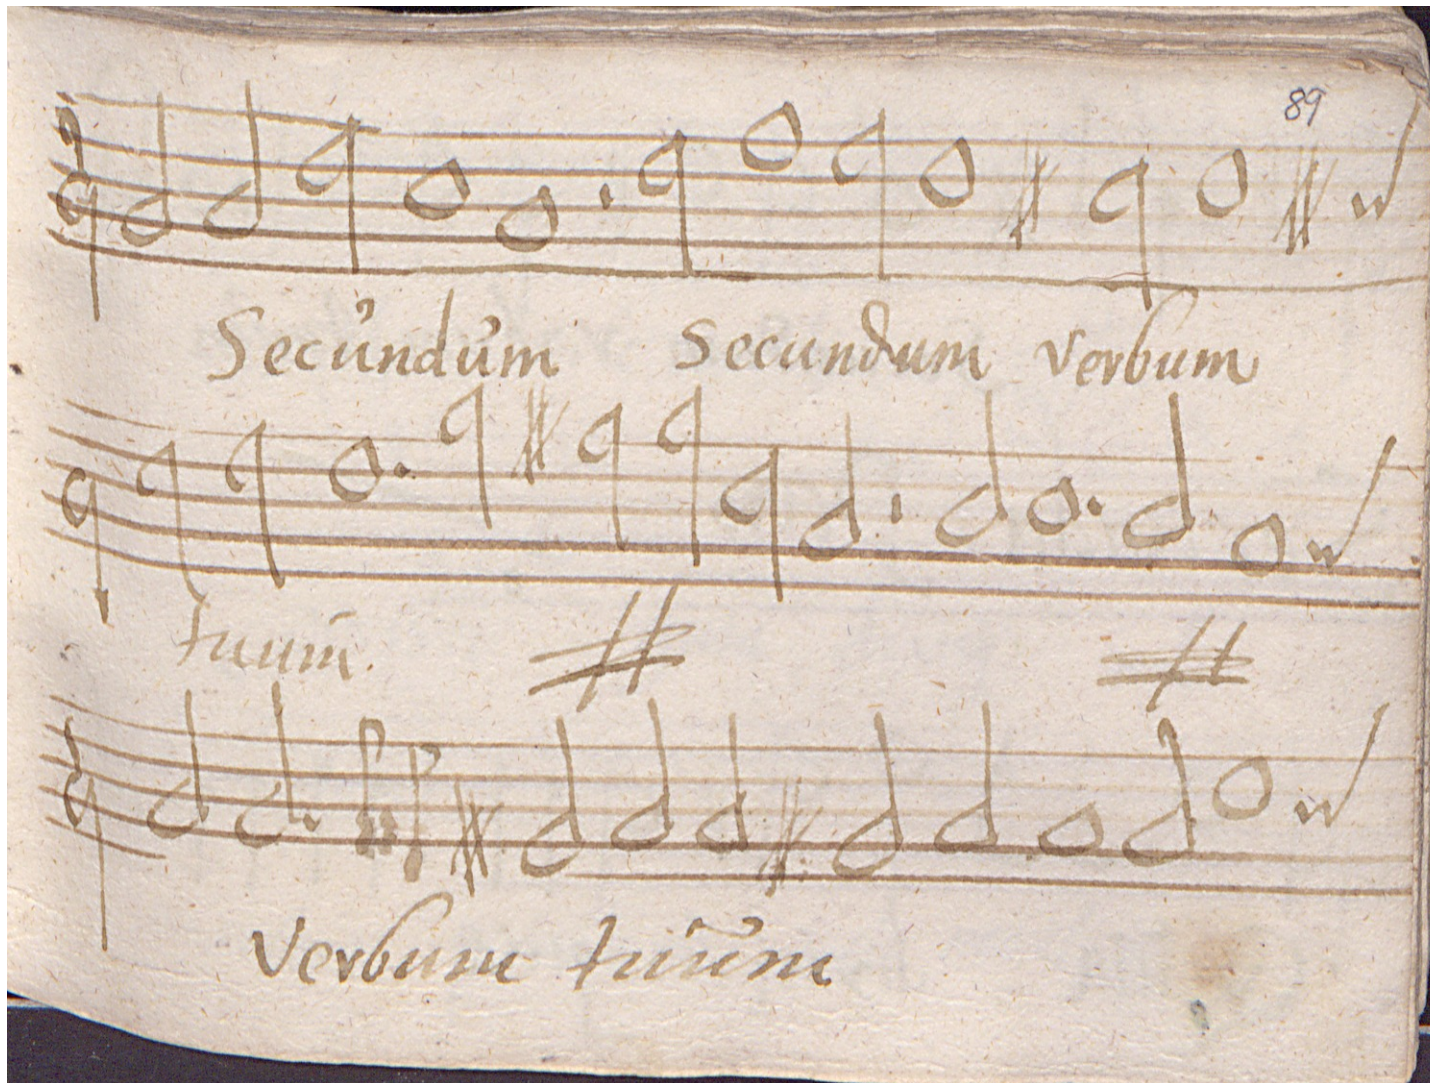 89
Secundum secundum verbum
tuum
Verbum tuum